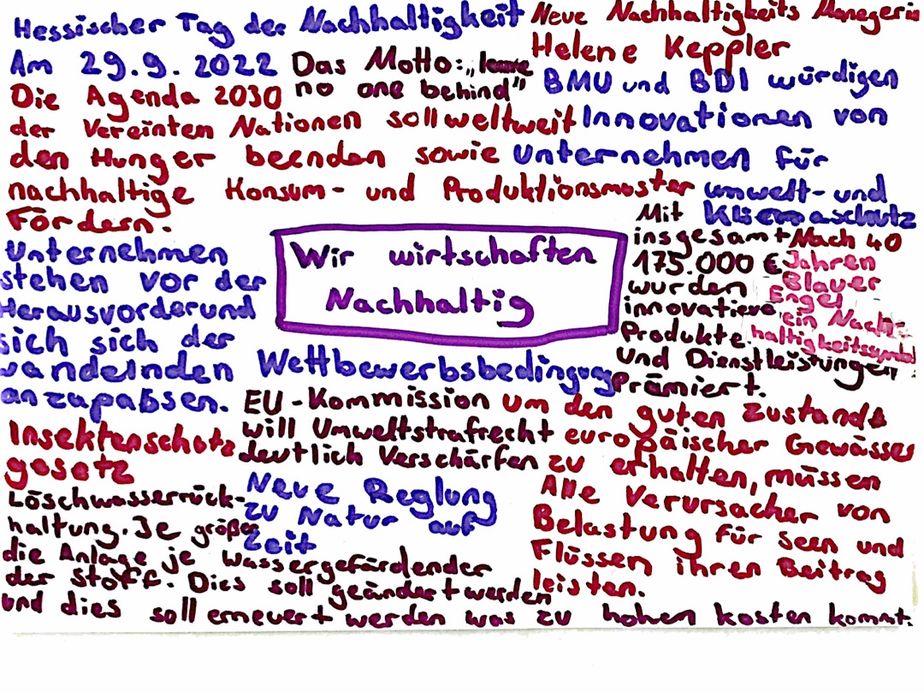 Hessischer Tag der Nachhaltigkeit
Am 29.9.2022
Das Motto: „leave
no one behind"
Neue Nachhaltigkeits Managerin
Helene Keppler
Die Agenda 2030
der Vereinten Nationen soll weltweit
den Hunger beenden sowie
nachhaltige Konsum- und Produktionsmuster
Fördern.
BMU und BDI würdigen
Innovationen von
Unternehmen für
umwelt- und
Klimaschutz
Unternehmen
stehen vor der
Herausvorderund
sich sich der
wandelnden Wettbewerbsbedingung
anzupassen.
Wir wirtschaften
Nachhaltig
Mit
insgesamt
175.000 €
wurden
innovative
Produkte
und Dienstleistungen
Prämiert.
Nach 40
Jahren
Blauer
Engel
ein Nach-
haltigkeitssymbol
EU-Kommission
will Umweltstrafrecht
deutlich Verschärfen
um den guten Zustands
europäischer Gewässer
zu erhalten, müssen
Alle Verursacher von
Belastung für Seen und
Flüssen ihren Beitrag
leisten.
Insektenschutz
gesetz
Neue Reglung
zu Natur auf
Zeit
Löschwasserrück-
haltung. Je größer
die Anlage je wassergefärdender
der Stoff. Dies soll geändert werden
und dies soll erneuert werden was zu hohen kosten kommt.